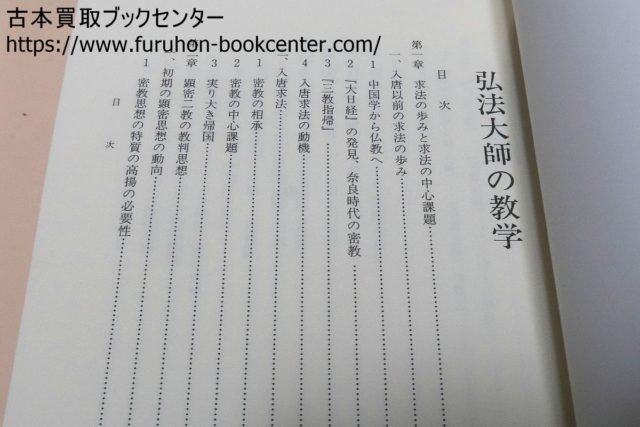 古本買取ブックセンター
https://www.furuhon-bookcenter.com/
弘法大師の教学
目次
第一章 求法の歩みと求法の中心課題
一、入唐以前の求法の歩み
1 中国学から仏教へ
2 『大日経』の発見、奈良時代の密教
3 『三教指帰』
4 入唐求法の動機
二、入唐求法
1 密教の相承
2 密教の中心課題
3 実り大き帰国
第二章 顕密二教の教判思想
一、初期の顕密思想の動向
1 密教思想の特質の高揚の必要性
目次